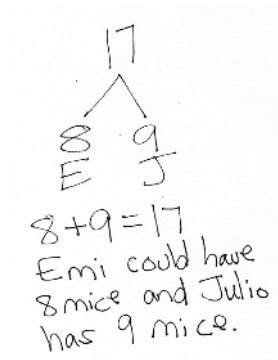 17
8 9
E J
8+9=17
Emi could have
8 mice and Julio
has 9 mice.